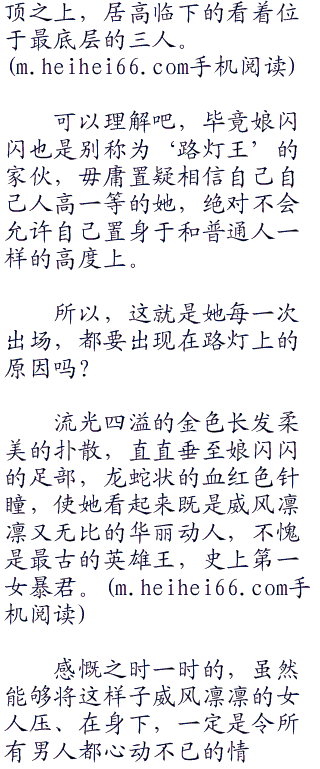 顶之上，居高临下的看着位
于最底层的三人。
(m.heihei66.com手机阅读)
可以理解吧，毕竟娘闪
闪也是别称为‘路灯王’的
家伙，毋庸置疑相信自己自
己人高一等的她，绝对不会
允许自己置身于和普通人一
样的高度上。
所以，这就是她每一次
出场，都要出现在路灯上的
原因吗？
流光四溢的金色长发柔
美的扑散，直直垂至娘闪闪
的足部，龙蛇状的血红色针
瞳，使她看起来既是威风凛
凛又无比的华丽动人，不愧
是最古的英雄王，史上第一
女暴君。(m.heihei66.com手
机阅读)
感慨之时一时的，虽然
能够将这样子威风凛凛的女
人压、在身下，一定是令所
有男人都心动不已的情